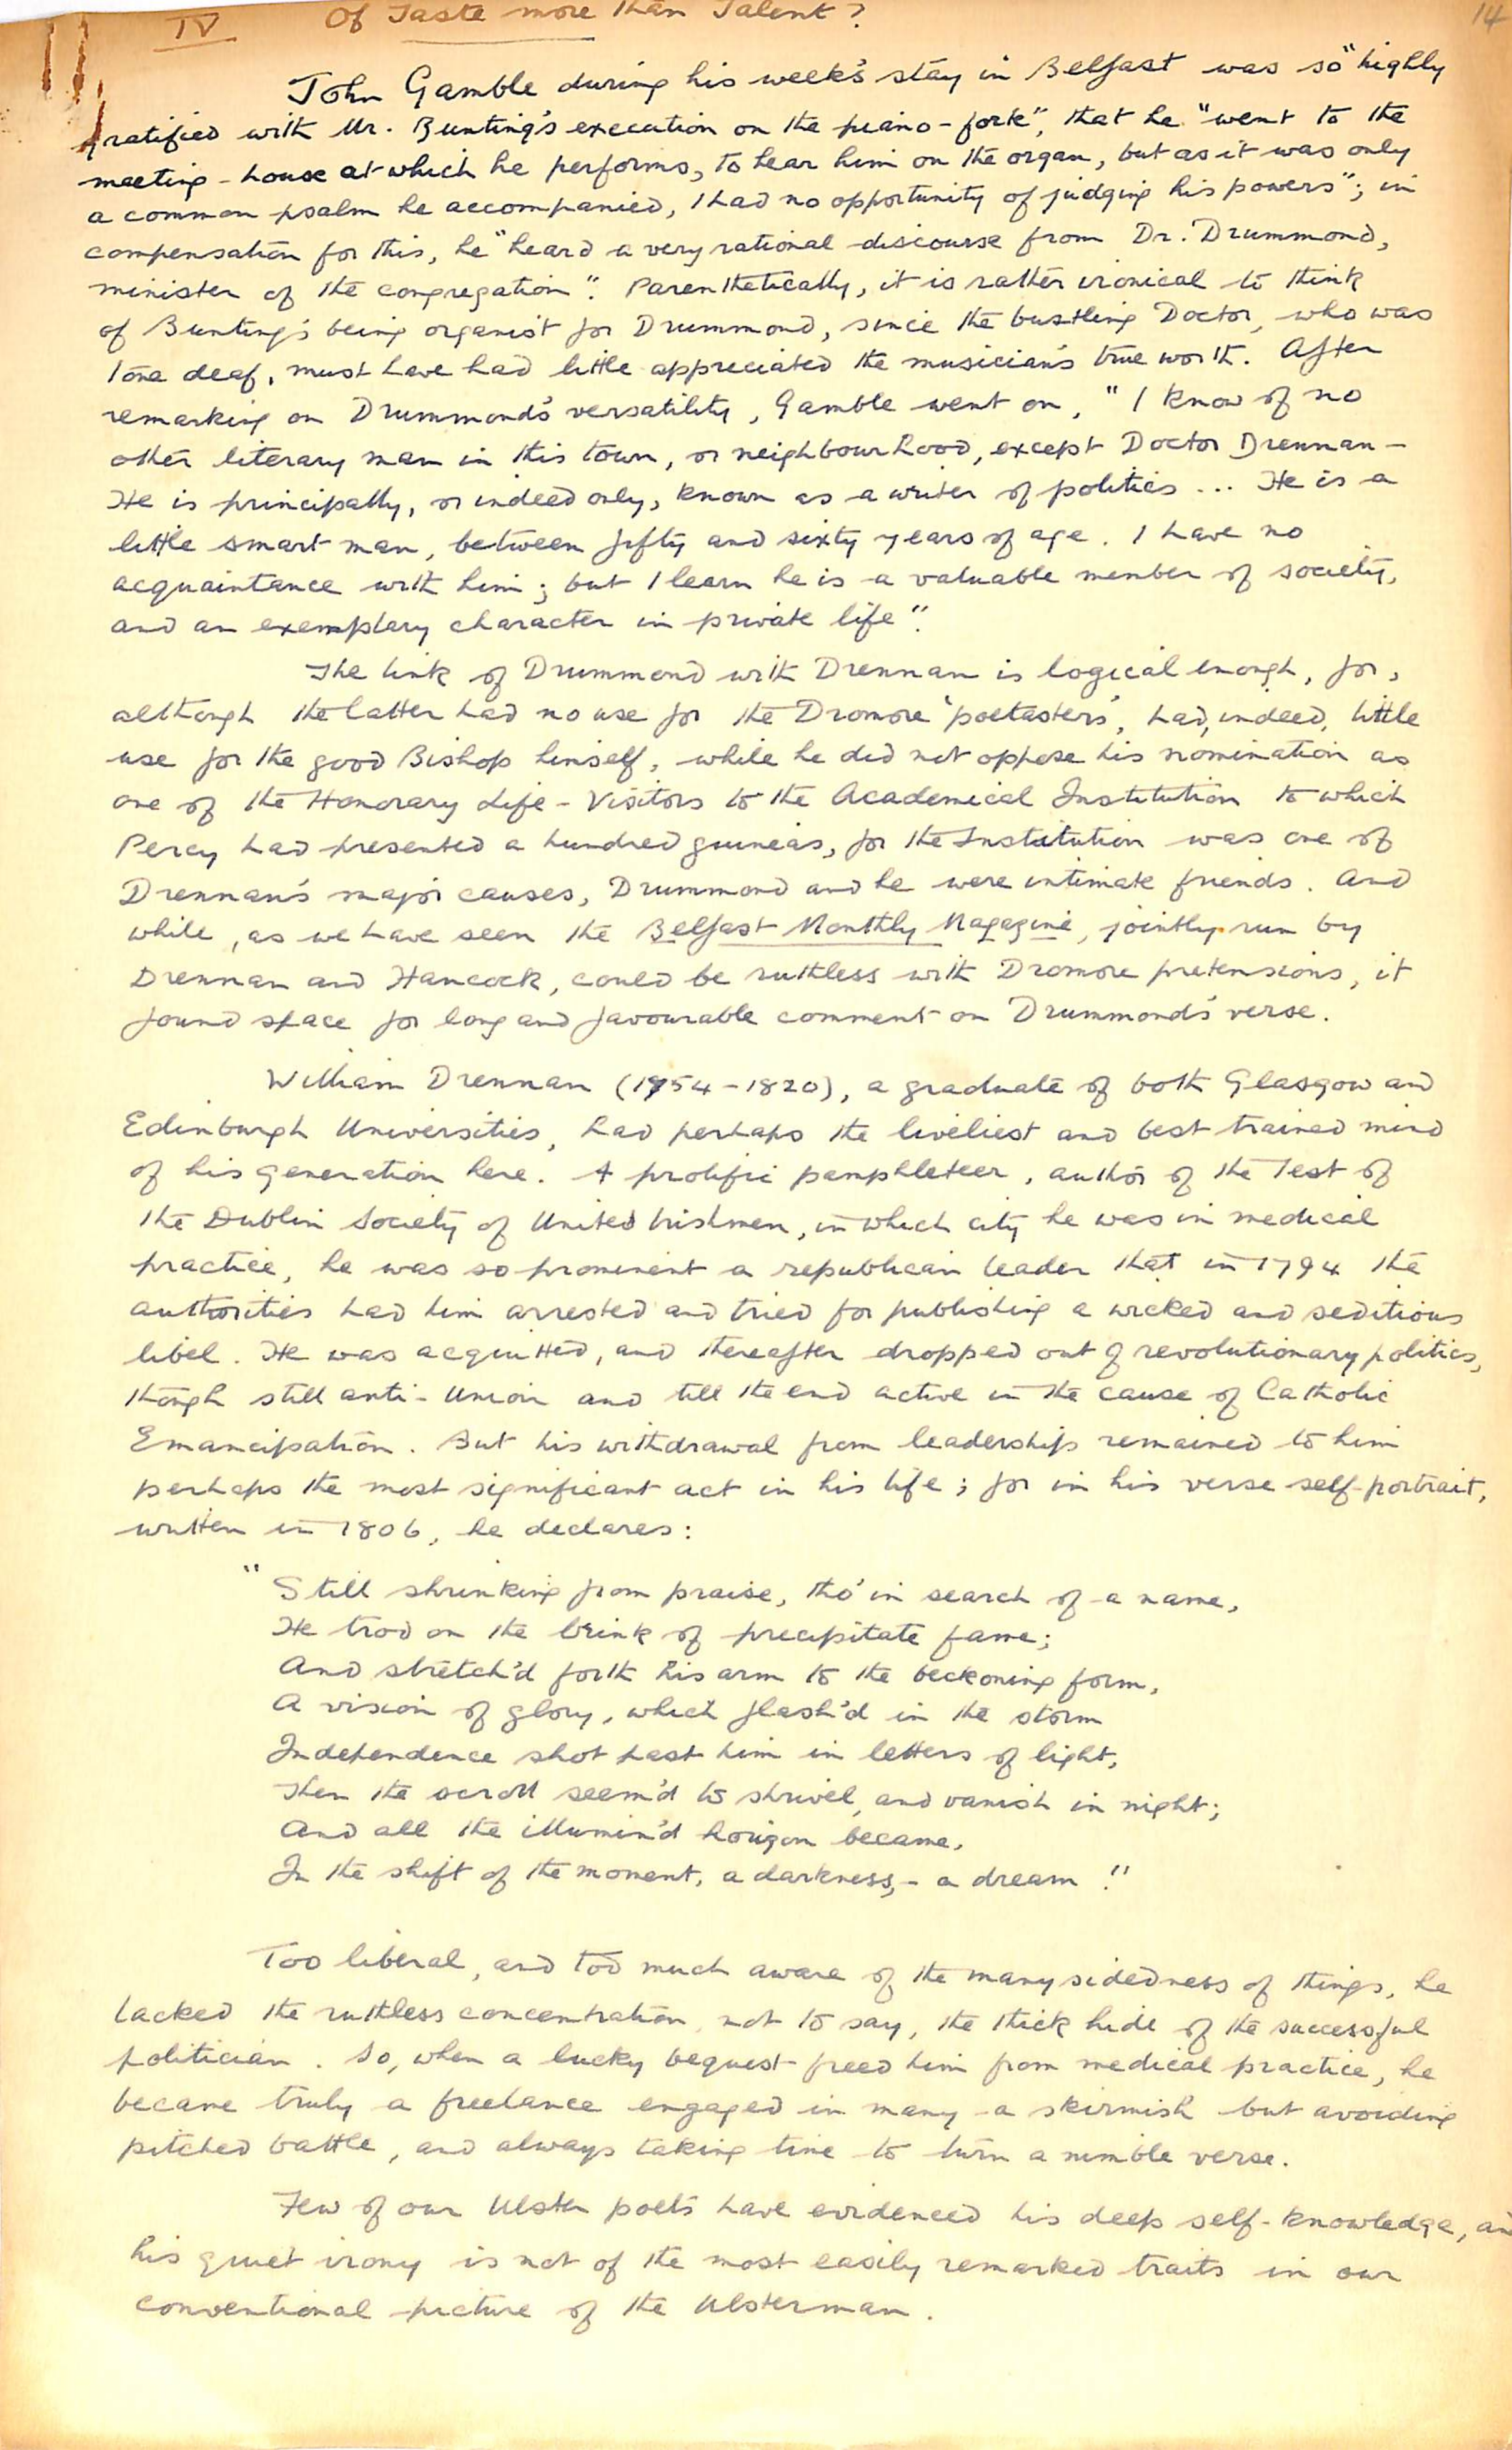 14
IV Of Taste more than Talent?
John Gamble during his week's stay in Belfast was so "highly
gratified with Mr. Bunting's execution on the piano-forte", that he "went to the
meeting-house at which he performs, to hear him on the organ, but as it was only
a common psalm he accompanied, I had no opportunity of judging his powers"; in
compensation for this, he "heard a very rational discourse from Dr. Drummond,
minister of the congregation". Parenthetically, it is rather ironical to think
of Bunting's being organist for Drummond, since the bustling Doctor, who was
tone deaf, must have had little appreciated the musician's true worth. After
remarking on Drummond's versatility, Gamble went on, "I know of no
other literary man in this town, or neighbourhood, except Doctor Drennan –
He is principally, or indeed only, known as a writer of politics ... He is a
little smart man, between fifty and sixty years of age. I have no
acquaintance with him; but I learn he is a valuable member of society,
and an exemplary character in private life".
The link of Drummond with Drennan is logical enough, for,
although the latter had no use for the Dromore 'poetasters', had, indeed, little
use for the good Bishop himself, while he did not oppose his nomination as
one of the Honorary Life-Visitors to the Academical Institution to which
Percy had presented a hundred guineas, for the Institution was one of
Drennan's major causes, Drummond and he were intimate friends. And
while, as we have seen the Belfast Monthly Magazine, jointly run by
Drennan and Hancock, could be ruthless with Dromore pretensions, it
found space for long and favourable comment on Drummond's verse.
William Drennan (1754-1820), a graduate of both Glasgow and
Edinburgh Universities, had perhaps the liveliest and best trained mind
of his generation here. A prolific pamphleteer, author of the Test of
the Dublin Society of United Irishmen, in which city he was in medical
practice, he was so prominent a republican leader that in 1794 the
authorities had him arrested and tried for publishing a wicked and seditious
libel. He was acquitted, and thereafter dropped out of revolutionary politics,
though still anti-Union and till the end active in the cause of Catholic
Emancipation. But his withdrawal from leadership remained to him
perhaps the most significant act in his life; for in his verse self-portrait,
written in 1806, he declares:
"Still shrinking from praise, tho' in search of a name,
He trod on the brink of precipitate fame;
And stretch'd forth his arm to the beckoning form,
A vision of glory, which flash'd in the storm
Independence shot past him in letters of light,
Then the scroll seem'd to shrivel, and vanish in night;
And all the illumin'd horizon became,
In the shift of the moment, a darkness, – a dream!"
Too liberal, and too much aware of the manysidedness of things, he
lacked the ruthless concentration, not to say, the thick hide of the successful
politician. So, when a lucky bequest freed him from medical practice, he
became truly a freelance engaged in many a skirmish but avoiding
pitched battle, and always taking time to turn a nimble verse.
Few of our Ulster poets have evidenced his deep self-knowledge, and
his quiet irony is not of the most easily remarked traits in our
conventional picture of the Ulsterman.